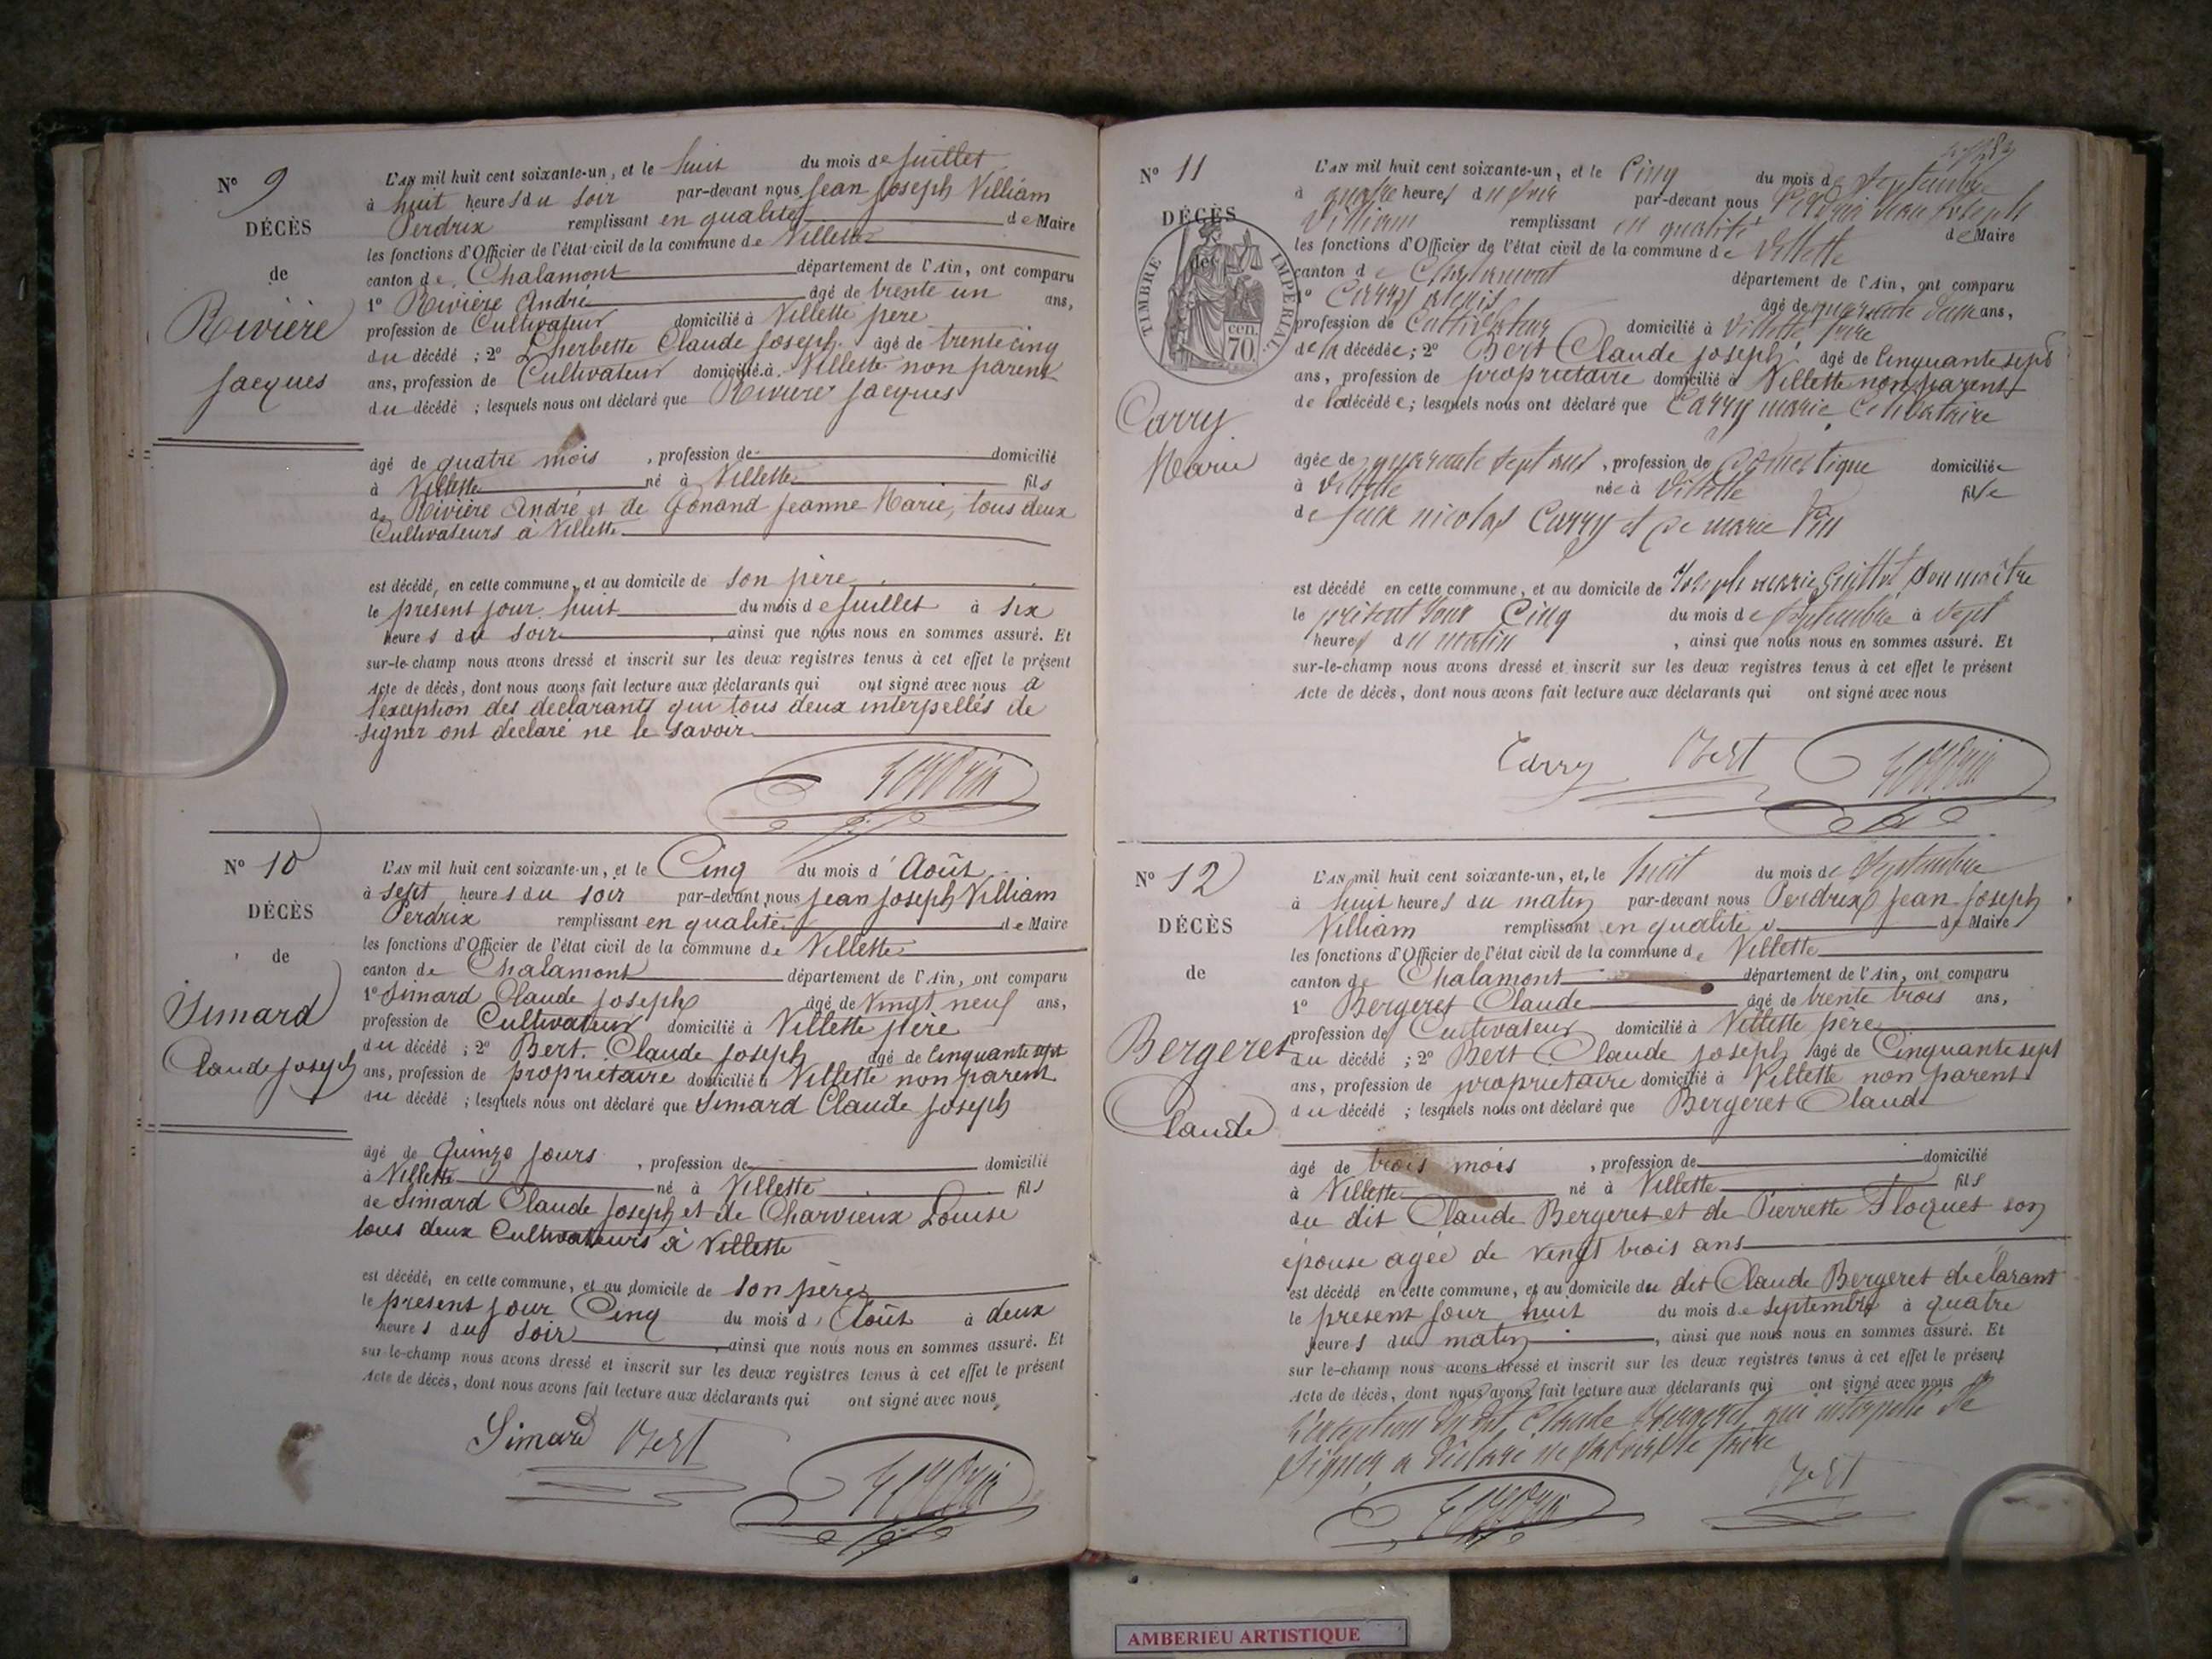 N° 9
DÉCÈS
de
Rivière
Jacques
L'AN mil huit cent soixante-un, et le huit du mois de Juillet
à huit heures du soir par-devant nous Jean Joseph Villiam
Perdrix remplissant en qualité de Maire
les fonctions d'Officier de l'état civil de la commune de Villette
canton de Chalamont département de l'Ain, ont comparu
1° Rivière André âgé de trente un ans,
profession de Cultivateur domicilié à Villette père
du décédé ; 2° Lherbette Claude Joseph âgé de trente cinq
ans, profession de Cultivateur domicilié à Villette non parent
du décédé ; lesquels nous ont déclaré que Rivière Jacques
âgé de quatre mois , profession de domicilié
à Villette né à Villette fils
de Rivière André et de Gonand Jeanne Marie, tous deux
Cultivateurs à Villette
est décédé, en cette commune, et au domicile de son père
le présent jour huit du mois de Juillet à six
heures du soir , ainsi que nous nous en sommes assuré. Et
sur-le-champ nous avons dressé et inscrit sur les deux registres tenus à cet effet le présent
Acte de décès, dont nous avons fait lecture aux déclarants qui ont signé avec nous a
l'exception des declarants qui tous deux interpellés de
signer ont déclaré ne le savoir
Perdrix
N° 10
DÉCÈS
de
Simard
Claude Joseph
L'AN mil huit cent soixante-un, et le Cinq du mois d'Août
à sept heures du soir par-devant nous Jean Joseph Villiam
Perdrix remplissant en qualité de Maire
les fonctions d'Officier de l'état civil de la commune de Villette
canton de Chalamont département de l'Ain, ont comparu
1° Simard Claude Joseph âgé de vingt neuf ans,
profession de Cultivateur domicilié à Villette père
du décédé ; 2° Bert Claude Joseph âgé de Cinquante sept
ans, profession de propriétaire domicilié à Villette non parent
du décédé ; lesquels nous ont déclaré que Simard Claude Joseph
âgé de Quinze jours , profession de domicilié
à Villette né à Villette fils
de Simard Claude Joseph et de Charvieux Louise
tous deux Cultivateurs à Villette
est décédé, en cette commune, et au domicile de son père
le présent jour Cinq du mois d'Août à deux
heures du soir , ainsi que nous nous en sommes assuré. Et
sur-le-champ nous avons dressé et inscrit sur les deux registres tenus à cet effet le présent
Acte de décès, dont nous avons fait lecture aux déclarants qui ont signé avec nous
Simard Bert
Perdrix
N° 11
DÉCÈS
de
TIMBRE IMPERIAL
70 cen.
Carry
Marie
L'AN mil huit cent soixante-un, et le Cinq du mois de Septembre
à quatre heures du soir par-devant nous Perdrix Jean Joseph
Villiam remplissant en qualité de Maire
les fonctions d'Officier de l'état civil de la commune de Villette
canton de Chalamont département de l'Ain, ont comparu
1° Carry âgé de quarante ans,
profession de Cultivateur domicilié à Villette
de la décédée ; 2° Bert Claude Joseph âgé de Cinquante sept
ans, profession de propriétaire domicilié à Villette non parent
de la décédée ; lesquels nous ont déclaré que Carry marie Celibataire
âgée de quarante sept ans , profession de Domestique domiciliée
à Villette née à Villette fille
de Jean nicolas Carry et de marie
est décédé en cette commune, et au domicile de Joseph marie Guillot son maître
le présent jour Cinq du mois de Septembre à sept
heures du matin , ainsi que nous nous en sommes assuré. Et
sur-le-champ nous avons dressé et inscrit sur les deux registres tenus à cet effet le présent
Acte de décès, dont nous avons fait lecture aux déclarants qui ont signé avec nous
Carry Bert Perdrix
N° 12
DÉCÈS
de
Bergeret
Claude
L'AN mil huit cent soixante-un, et le huit du mois de Septembre
à huit heures du matin par-devant nous Perdrix Jean Joseph
Villiam remplissant en qualité de Maire
les fonctions d'Officier de l'état civil de la commune de Villette
canton de Chalamont département de l'Ain, ont comparu
1° Bergeret Claude âgé de trente trois ans,
profession de Cultivateur domicilié à Villette père
du décédé ; 2° Bert Claude Joseph âgé de Cinquante sept
ans, profession de propriétaire domicilié à Villette non parent
du décédé ; lesquels nous ont déclaré que Bergeret Claude
âgé de trois mois , profession de domicilié
à Villette né à Villette fils
du dit Claude Bergeret et de Pierrette Floquet son
épouse agée de vingt trois ans
est décédé en cette commune, et au domicile du dit Claude Bergeret déclarant
le présent jour huit du mois de septembre à quatre
heures du matin , ainsi que nous nous en sommes assuré. Et
sur-le-champ nous avons dressé et inscrit sur les deux registres tenus à cet effet le présent
Acte de décès, dont nous avons fait lecture aux déclarants qui ont signé avec nous
l'exception du dit Claude Bergeret qui interpellé de
signer a déclaré ne savoir le faire
Perdrix Bert
AMBERIEU ARTISTIQUE